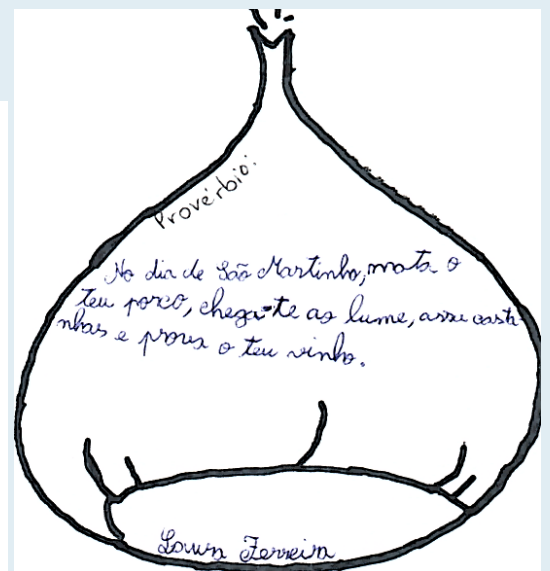 Provérbio:
No dia de São Martinho, mata o
teu porco, chega-te ao lume, assa casta
nhas e prova o teu vinho.
Laura Ferreira